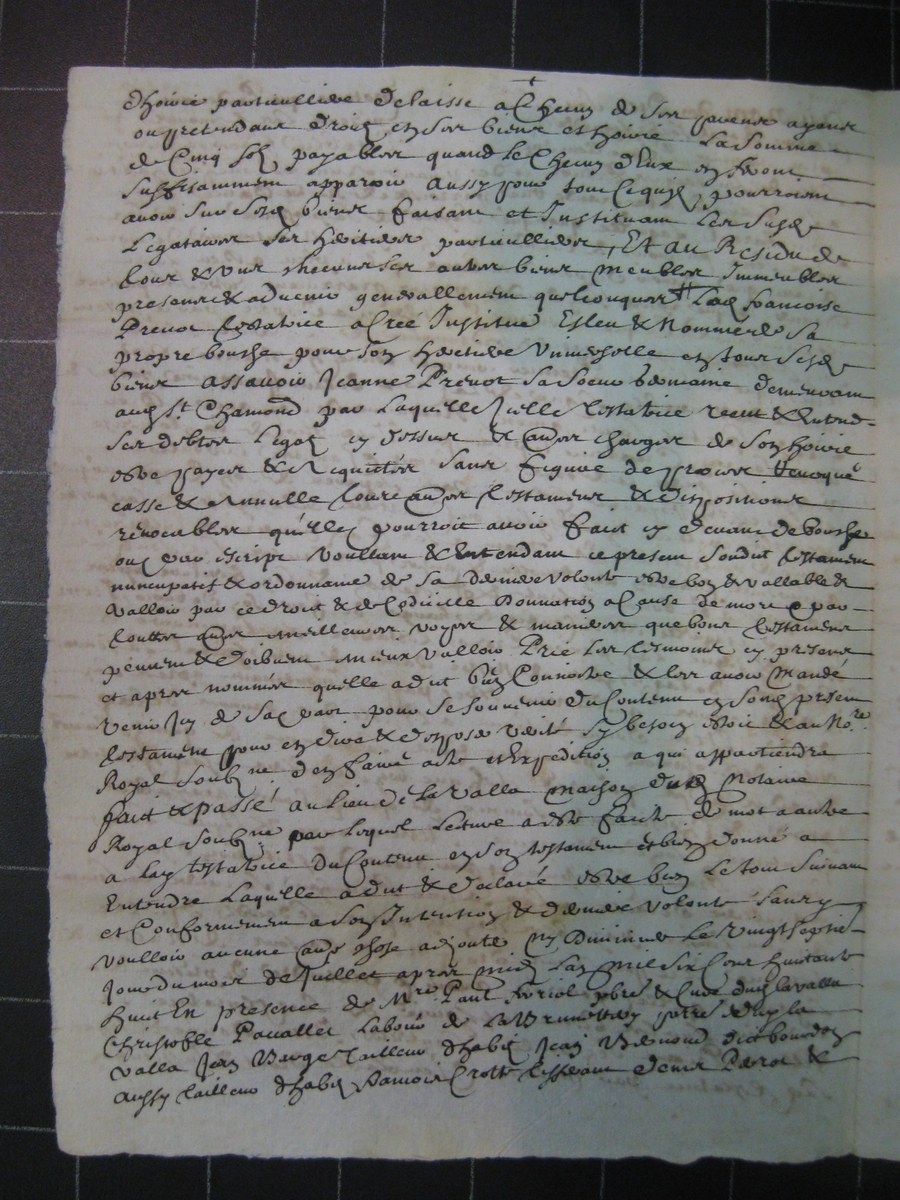 d'hoirie particulliere delaisse a Checun de ses parens ayans
ou pretendans droict en ses biens et hoirie La Somme
de Cinq sols payables quand le Checun d'Eux en feront
suffisamment apparoir aussy pour tout ce qu'ils pourroient
avoir sur sesd biens faisant et Instituant les susd
Legataires ses heritiers particulliers, Et au Residu de
tous & uns checuns ses autres biens meubles Immeubles
presens & advenir generallement quelconques Lad francoise
Prevot testatrice a Creé Institué Esleu & Nommé de sa
propre bouche pour son heritiere universelle en tous sesd
biens assavoir Jeanne Prevot sa soeur germaine demeurant
aud St Chamond par laquelle icelle testatrice veut & Entend
ses debtes legats cy dessus & autres charges de son hoirie
estre payés & acquittés sans figure de proces Revoqué
casse & Annulle tous autres testaments & dispositions
revocables qu'elle pourroit avoir fait cy devant de bouche
ou par escript voullant & Entendant ce present son dit testament
nuncupatif & ordonnance de sa derniere volonté estre bon & vallable &
valloir par ce droit & de Codicille donnation a Cause de mort & par
touttes autres meilleures voyes & manieres que bons testaments
peuvent & doibvent mieux valloir Prié les tesmoins cy presens
et apres nommés qu'elle a dit bien Connoistre & les avoir mandé
venir icy de sa part pour se souvenir du Contenu en son present
testament pour en dire & deposer verité sy besoin estoit & au No.re
Royal soubz.ne d'en faire acte et Expedition a qui appartiendra
fait & passé au lieu de la valla maison dud Notaire
Royal soubz.ne par lequel lecture a esté faite de mot a autre
a lad testatrice du Contenu en son testament & bien donné a
Entendre Laquelle a dit & declaré estre bien Le tout suivant
et Conformement a son Intention & derniere volonté sans y
voulloir aucune autre chose adjouté ny diminué le vingt septie-
Jour du mois de Juillet apres midy L'an Mil six Cens huitante
huit En presence de M.re Paul Frriol pbre & Curé dud la valla
Christofle Pavallet Labour de la psse dud la
valla Jean Verge tailleur d'habits Jean Remond dit bourdon
Aussy tailleur d'habits Crotte tisserant Denis &